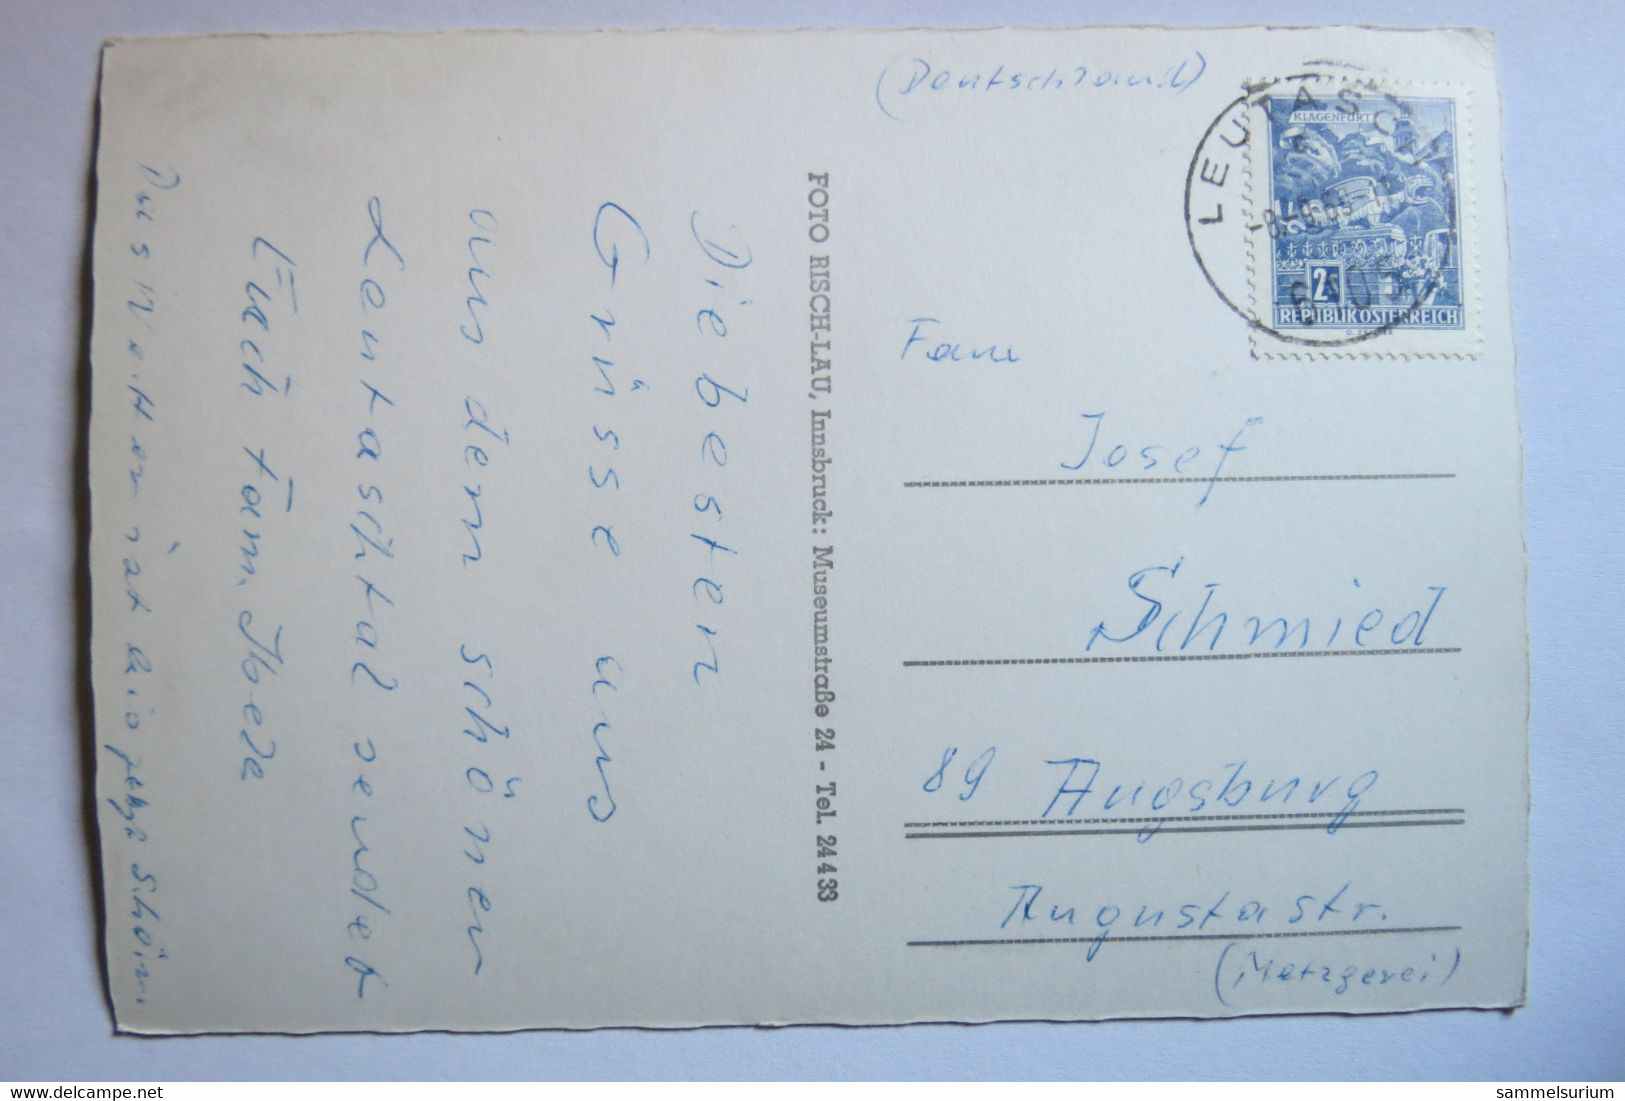 Die besten
Grüsse aus
aus dem schönen
Leutaschtal sendet
Euch Fam.
Das Wetter ist bis jetzt schön.
FOTO RISCH-LAU, Innsbruck: Museumstraße 24 - Tel. 24 4 33
(Deutschland)
LEUTASCH
KLAGENFURT
6105
2S
REPUBLIK ÖSTERREICH
Fam
Josef
Schmied
89 Augsburg
Augustastr.
(Metzgerei)
sammelsurium